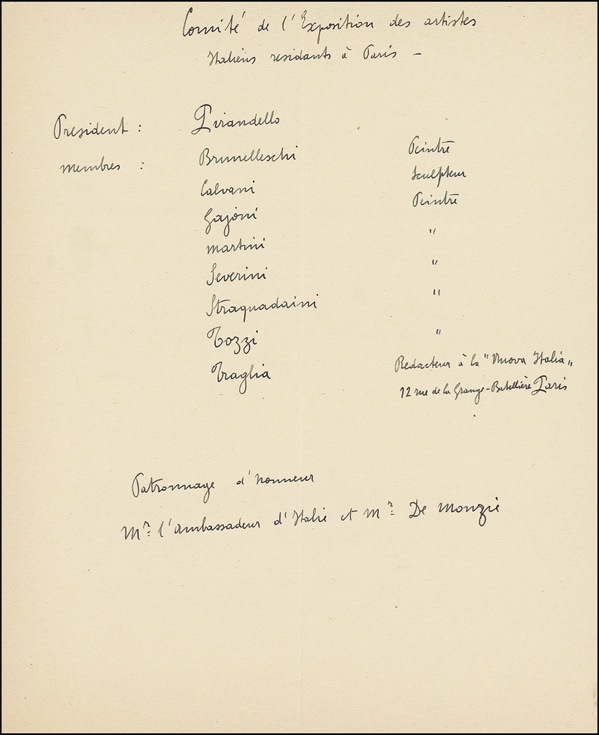 Comité de l'Exposition des artistes
Italiens residants à Paris —
President : Pirandello
membres : Brunelleschi Peintre
Calvani Sculpteur
Gajoni Peintre
martini "
Severini "
Straquadaini "
Tozzi "
Traglia Redacteur à la "Nuova Italia„
12 rue de la Grange-Batellière Paris
Patronnage d'honneur
Mr. l'Ambassadeur d'Italie et Mr. De Monzie